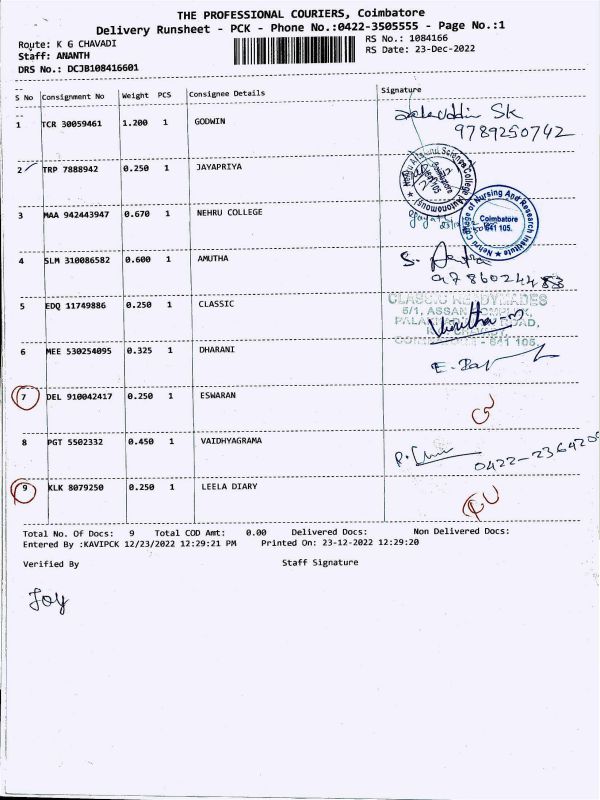 THE PROFESSIONAL COURIERS, Coimbatore
Delivery Runsheet - PCK - Phone No.:0422-3505555 - Page No.:1
Route: K G CHAVADI RS No.: 1084166
Staff: ANANTH RS Date: 23-Dec-2022
DRS No.: DCJB108416601
S No Consignment No Weight PCS Consignee Details Signature
1 TCR 30059461 1.200 1 GODWIN SK
9789250742
2 TRP 7888942 0.250 1 JAYAPRIYA
Nehru Arts and Science College (Autonomous)
3 MAA 942443947 0.670 1 NEHRU COLLEGE
Nehru College of Nursing And Research Institute
Coimbatore
641 105.
4 SLM 310086582 0.600 1 AMUTHA S.
5 EDQ 11749886 0.250 1 CLASSIC
CLASSIC READYMADES
5/1, ASSAN COMPLEX,
ROAD,
641 105.
6 MEE 530254095 0.325 1 DHARANI E.
7 DEL 910042417 0.250 1 ESWARAN
8 PGT 5502332 0.450 1 VAIDHYAGRAMA P.
9 KLK 8079250 0.250 1 LEELA DIARY
Total No. Of Docs: 9 Total COD Amt: 0.00 Delivered Docs: Non Delivered Docs:
Entered By :KAVIPCK 12/23/2022 12:29:21 PM Printed On: 23-12-2022 12:29:20
Verified By Staff Signature
Joy